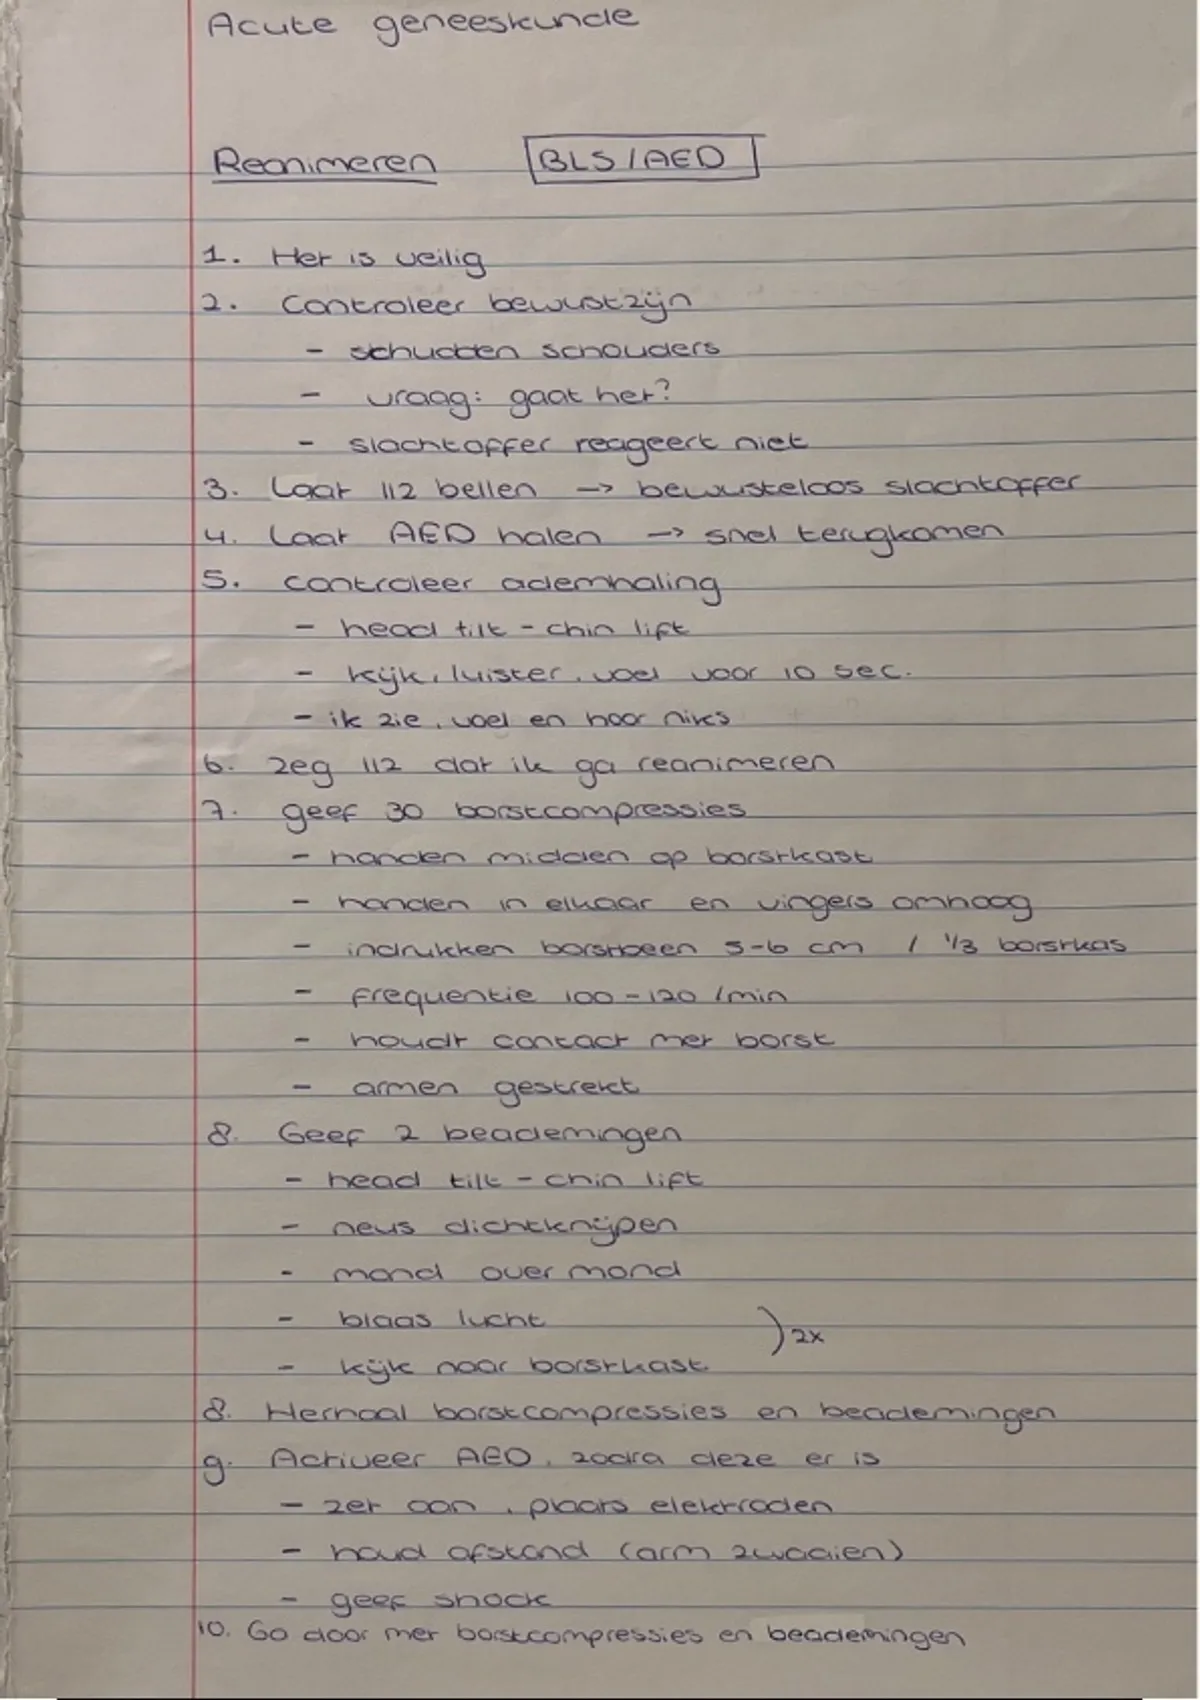 Acute geneeskunde
Reanimeren BLS / AED
1. Het is veilig
2. Controleer bewustzijn
- schudden schouders
- vraag: gaat het?
- slachtoffer reageert niet
3. Laat 112 bellen → bewusteloos slachtoffer
4. Laat AED halen → snel terugkomen
5. controleer ademhaling
- head tilt - chin lift
- kijk, luister, voel voor 10 sec.
- ik zie, voel en hoor niks
6. zeg 112 dat ik ga reanimeren
7. geef 30 borstcompressies
- handen midden op borstkast
- handen in elkaar en vingers omhoog
- indrukken borstbeen 5-6 cm / 1/3 borstkas
- frequentie 100-120 /min
- houdt contact met borst
- armen gestrekt
8. Geef 2 beademingen
- head tilt - chin lift
- neus dichtknijpen
- mond over mond
- blaas lucht ) 2x
- kijk naar borstkast
8. Herhaal borstcompressies en beademingen
9. Activeer AED, zodra deze er is
- zet aan, plaats elektroden
- houd afstand (arm zwaaien)
- geef shock
10. Ga door met borstcompressies en beademingen